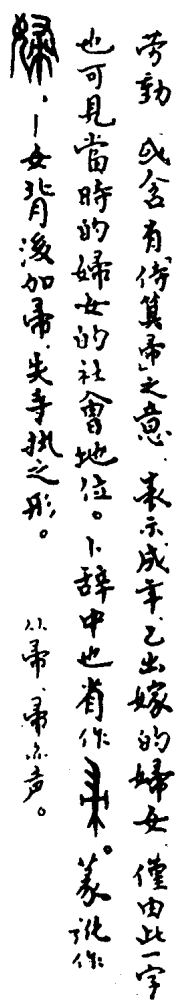 劳動 或含有「侍箕帚」之意 表示成年已出嫁的婦女 僅由此一字
也可見當時的婦女的社會地位。卜辞中也省作帚。篆訛作
婦，一女背後加帚，失手執之形。 从帚、帚亦声。